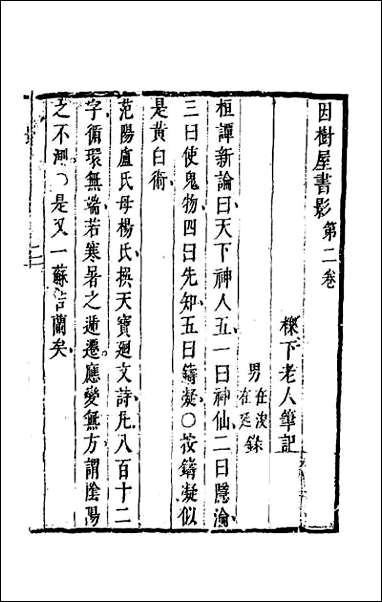 因樹屋書影第二卷
櫟下老人筆記
男在浚
在延錄
桓譚新論曰天下神人五一曰神仙二曰隱淪
三曰使鬼物四曰先知五曰鑄凝〇按鑄凝似
是黃白術
范陽盧氏母楊氏撰天寶廻文詩凡八百十二
字循環無端若寒暑之遞遷應變無方謂陰陽
之不測〇是又一蘇若蘭矣